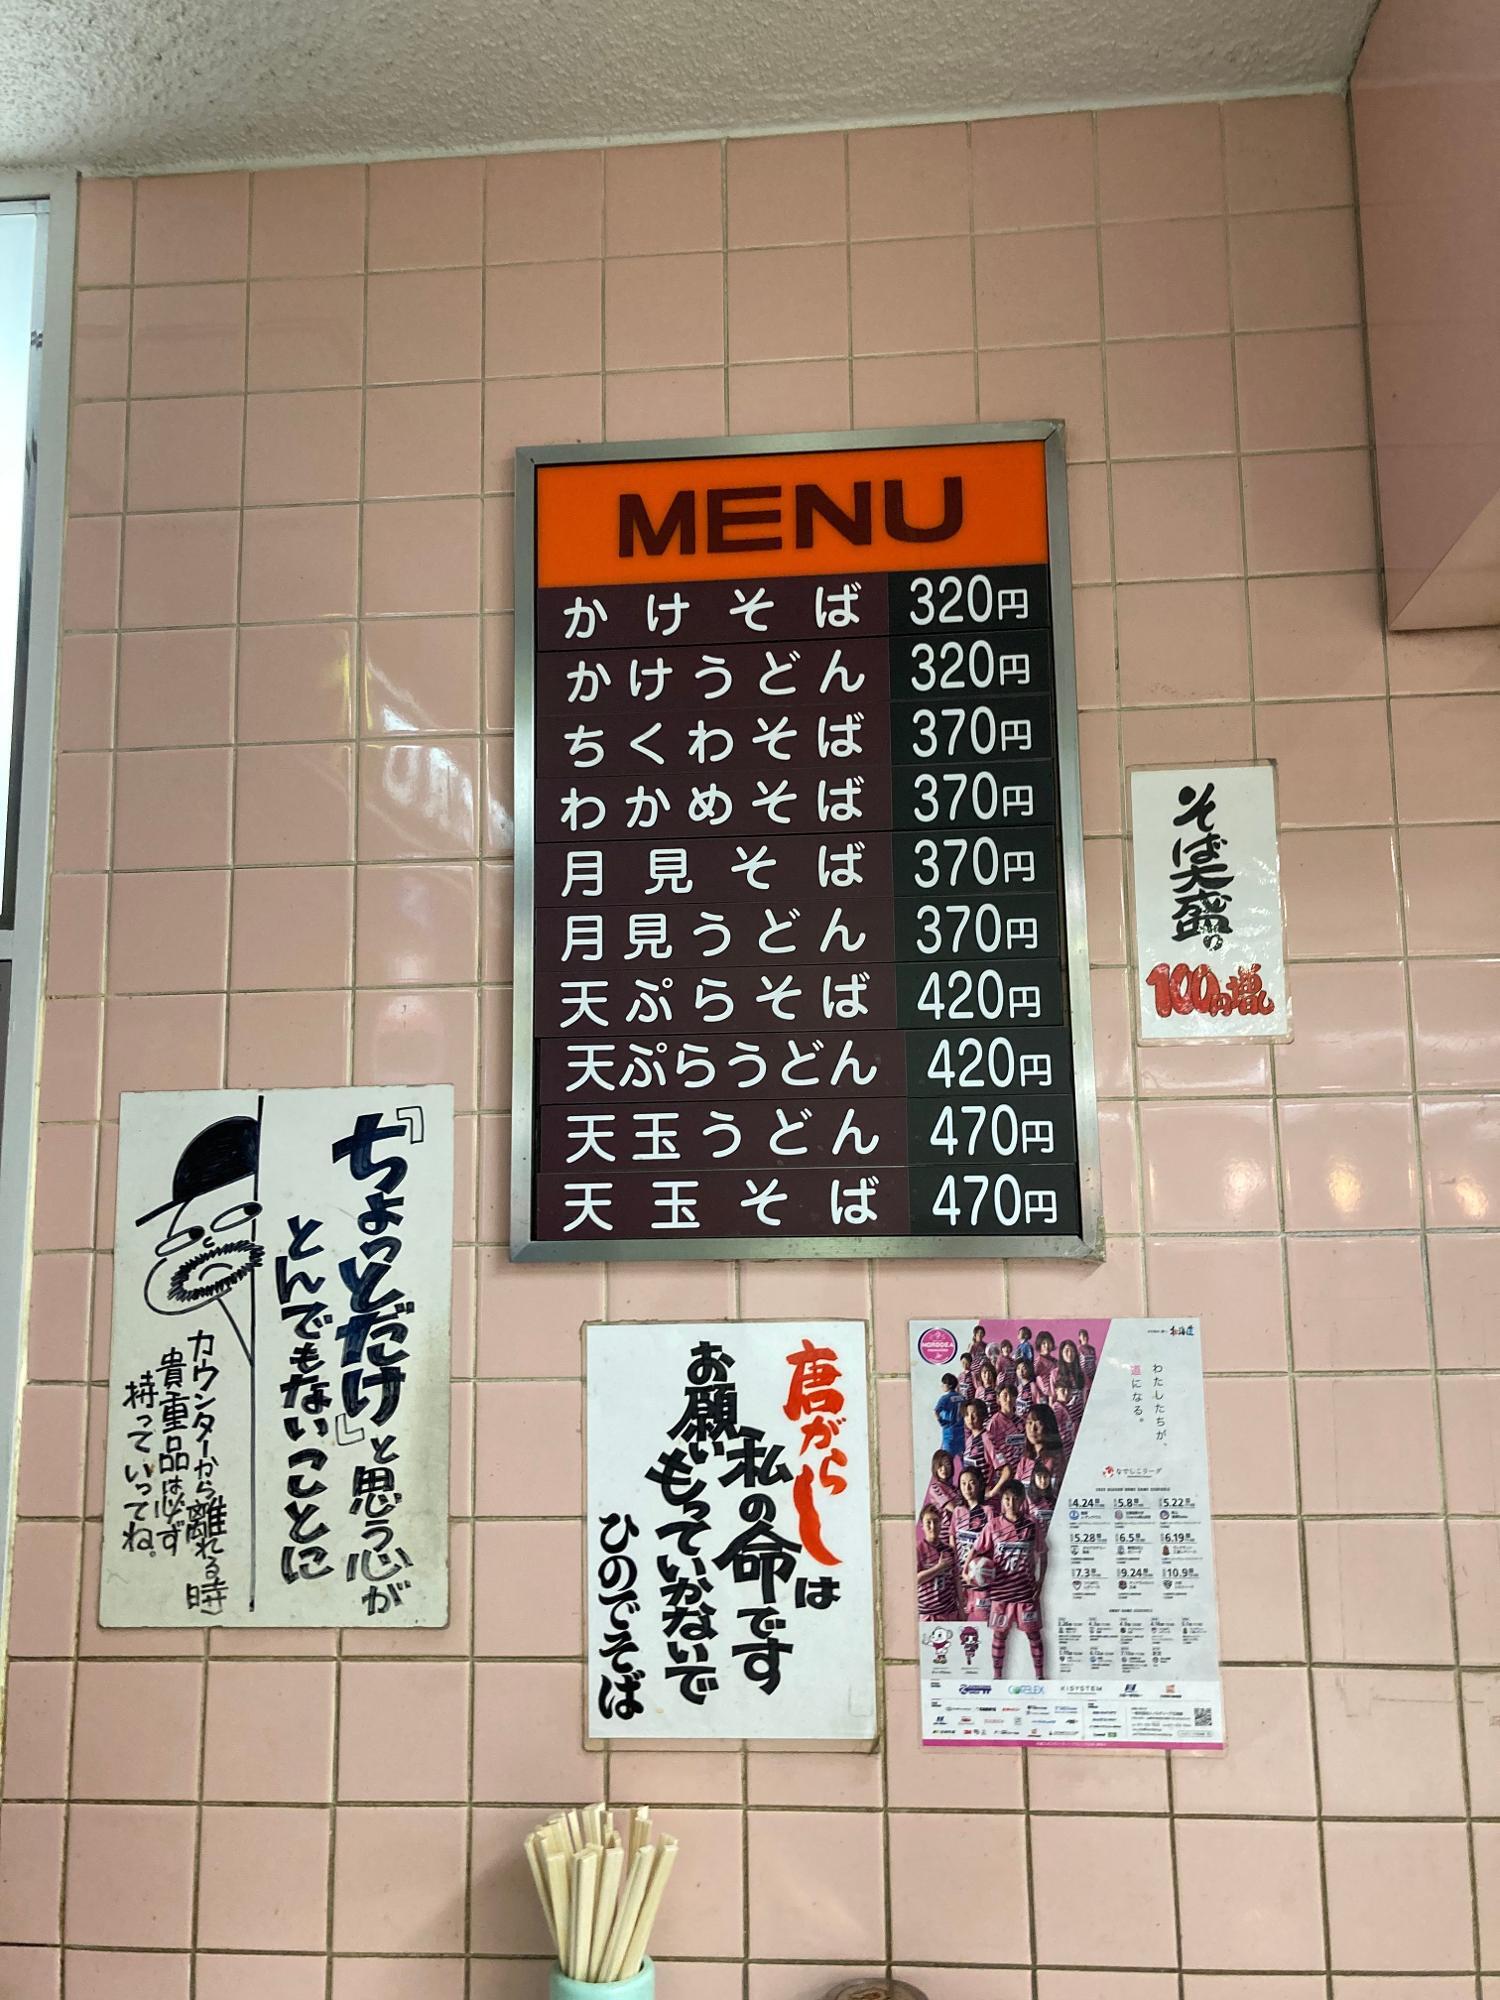 MENU
かけそば 320円
かけうどん 320円
ちくわそば 370円
わかめそば 370円
月見そば 370円
月見うどん 370円
天ぷらそば 420円
天ぷらうどん 420円
天玉うどん 470円
天玉そば 470円
そば大盛の
100円増し
『ちょっとだけ』と思う心が
とんでもないことに
カウンターから離れる時
貴重品は必ず
持っていってね。
唐がらしは
私の命です
お願いもっていかないで
ひのでそば
北海道
わたしたちが、
道になる。
なでしこリーグ
4.24 5.8 5.22
5.28 6.5 6.19
7.3 9.24 10.9
KISYSTEM